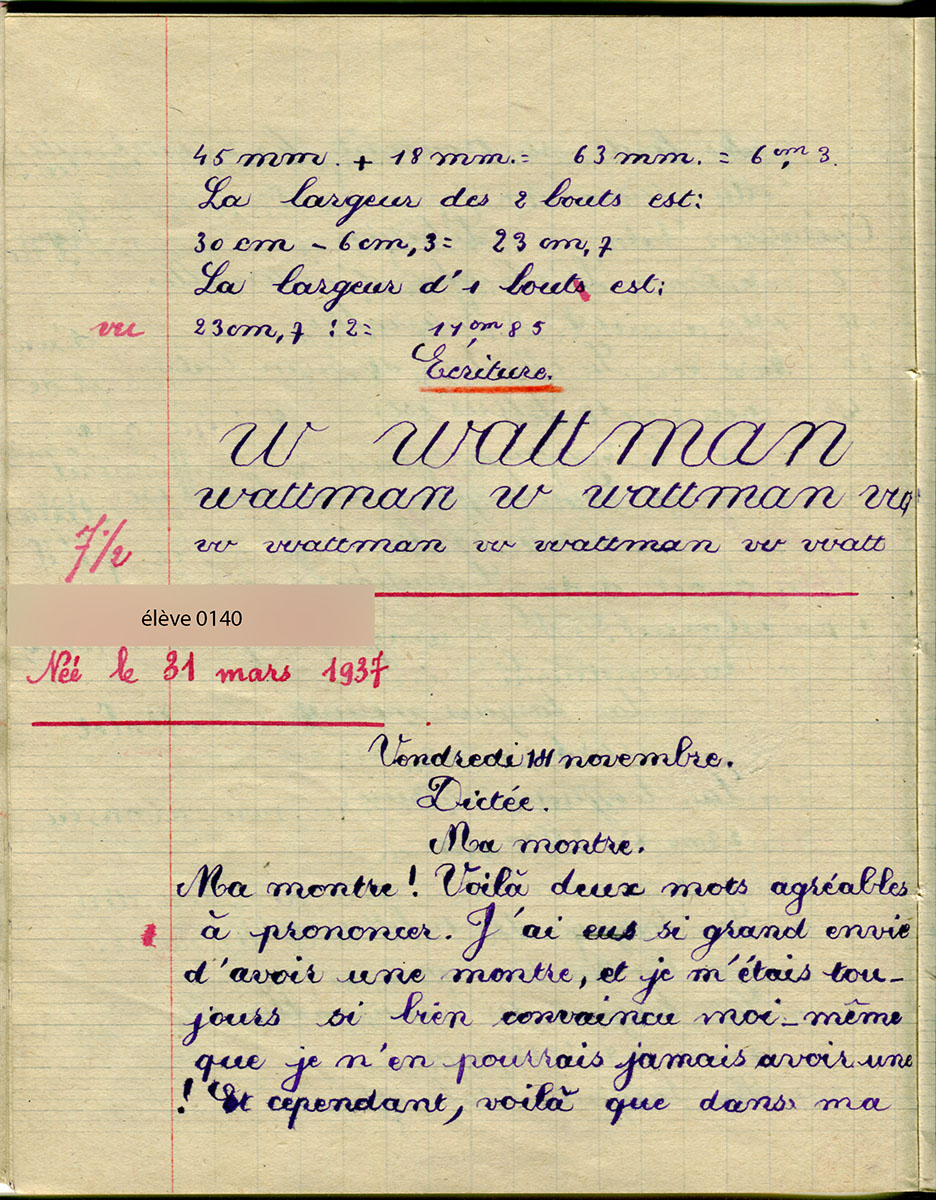 45 mm. + 18 mm. = 63 mm. = 6 cm, 3.
La largeur des 2 bouts est:
30 cm - 6 cm, 3 = 23 cm, 7
La largeur d'1 bouts est:
vu 23 cm, 7 : 2 = 11 cm 85
Écriture.
w wattman
wattman w wattman w
7 1/2
w wattman w wattman w watt
élève 0140
Néé le 31 mars 1937
Vendredi 14 novembre.
Dictée.
Ma montre.
Ma montre! Voilà deux mots agréables
à prononcer. J'ai eus si grand envie
d'avoir une montre, et je m'étais tou-
jours si bien convaincu moi-même
que je n'en pourrais jamais avoir une
! Et cependant, voilà que dans ma